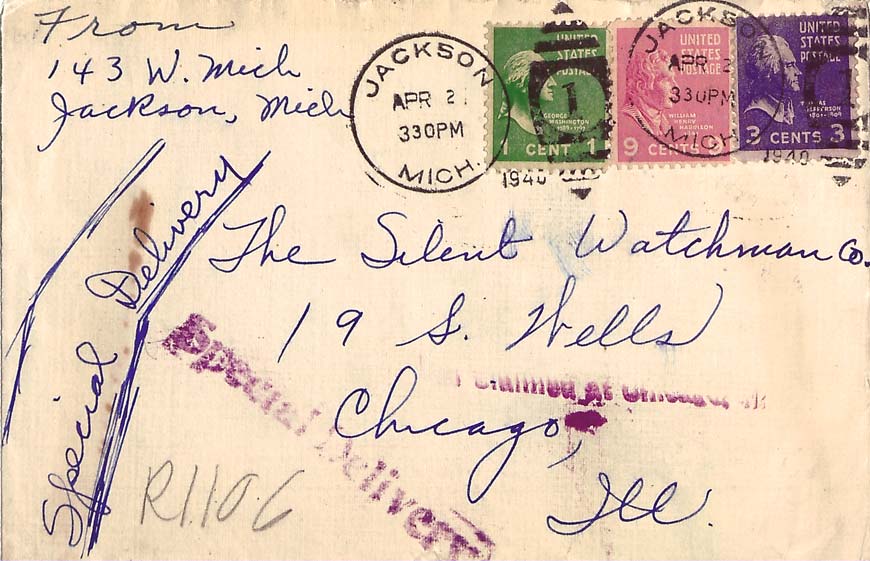 From
143 W. Mich
Jackson, Mich
JACKSON
APR 2
330PM
MICH.
1940
UNITED
STATES
POSTAGE
1
GEORGE
WASHINGTON
1 CENT 1
JACKSON
APR 2
330PM
MICH.
1940
UNITED
STATES
POSTAGE
WILLIAM
HENRY
HARRISON
9 CENTS
UNITED
STATES
POSTAGE
THOMAS
JEFFERSON
1801-1809
3 CENTS 3
Special Delivery
The Silent Watchman Co.
19 S. Wells
Chicago,
Ill.
Special Delivery
at Chicago, Ill
R1106